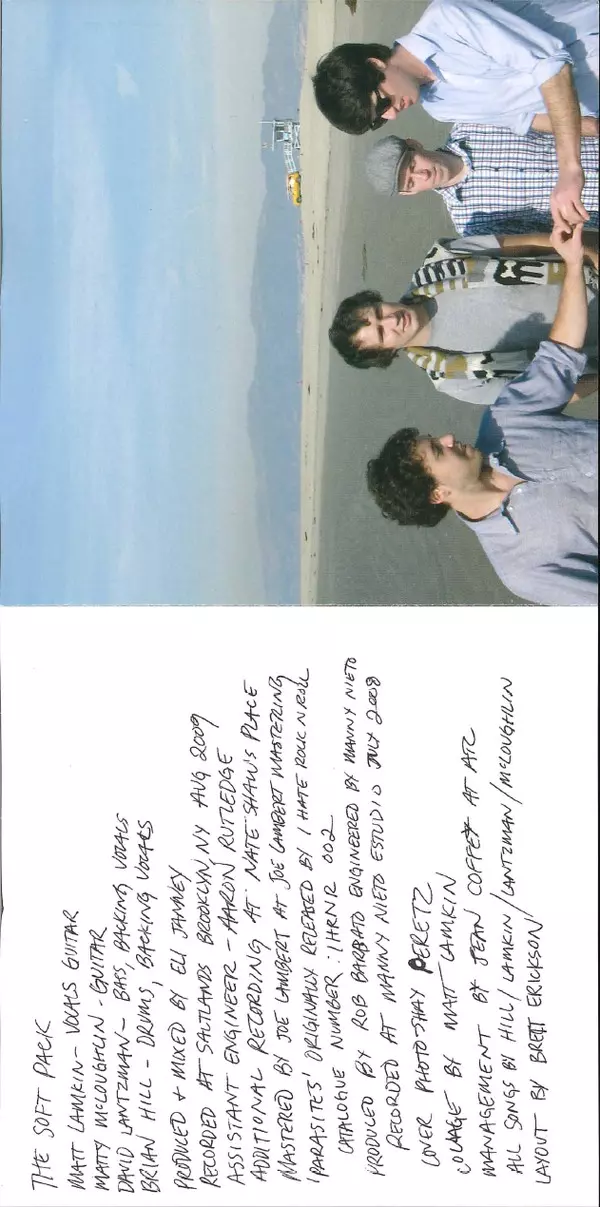 THE SOFT PACK
MATT LAMKIN - VOCALS GUITAR
MATTY MCLOUGHLIN - GUITAR
DAVID LANTZMAN - BASS, BACKING VOCALS
BRIAN HILL - DRUMS, BACKING VOCALS
PRODUCED + MIXED BY ELI JANNEY
RECORDED AT SALTLANDS BROOKLYN, NY AUG 2009
ASSISTANT ENGINEER - AARON RUTLEDGE
ADDITIONAL RECORDING AT NATE SHAW'S PLACE
MASTERED BY JOE LAMBERT AT JOE LAMBERT MASTERING
'PARASITES' ORIGINALLY RELEASED BY I HATE ROCK N ROLL
CATALOGUE NUMBER: IHRNR 002
PRODUCED BY ROB BARBATO ENGINEERED BY MANNY NIETO
RECORDED AT MANNY NIETO ESTUDIO JULY 2008
COVER PHOTO - SHAY PERETZ
COLLAGE BY MATT LAMKIN
MANAGEMENT BY JEAN COFFEY AT ATC
ALL SONGS BY HILL/LAMKIN/LANTZMAN/MCLOUGHLIN
LAYOUT BY BRETT ERICKSON